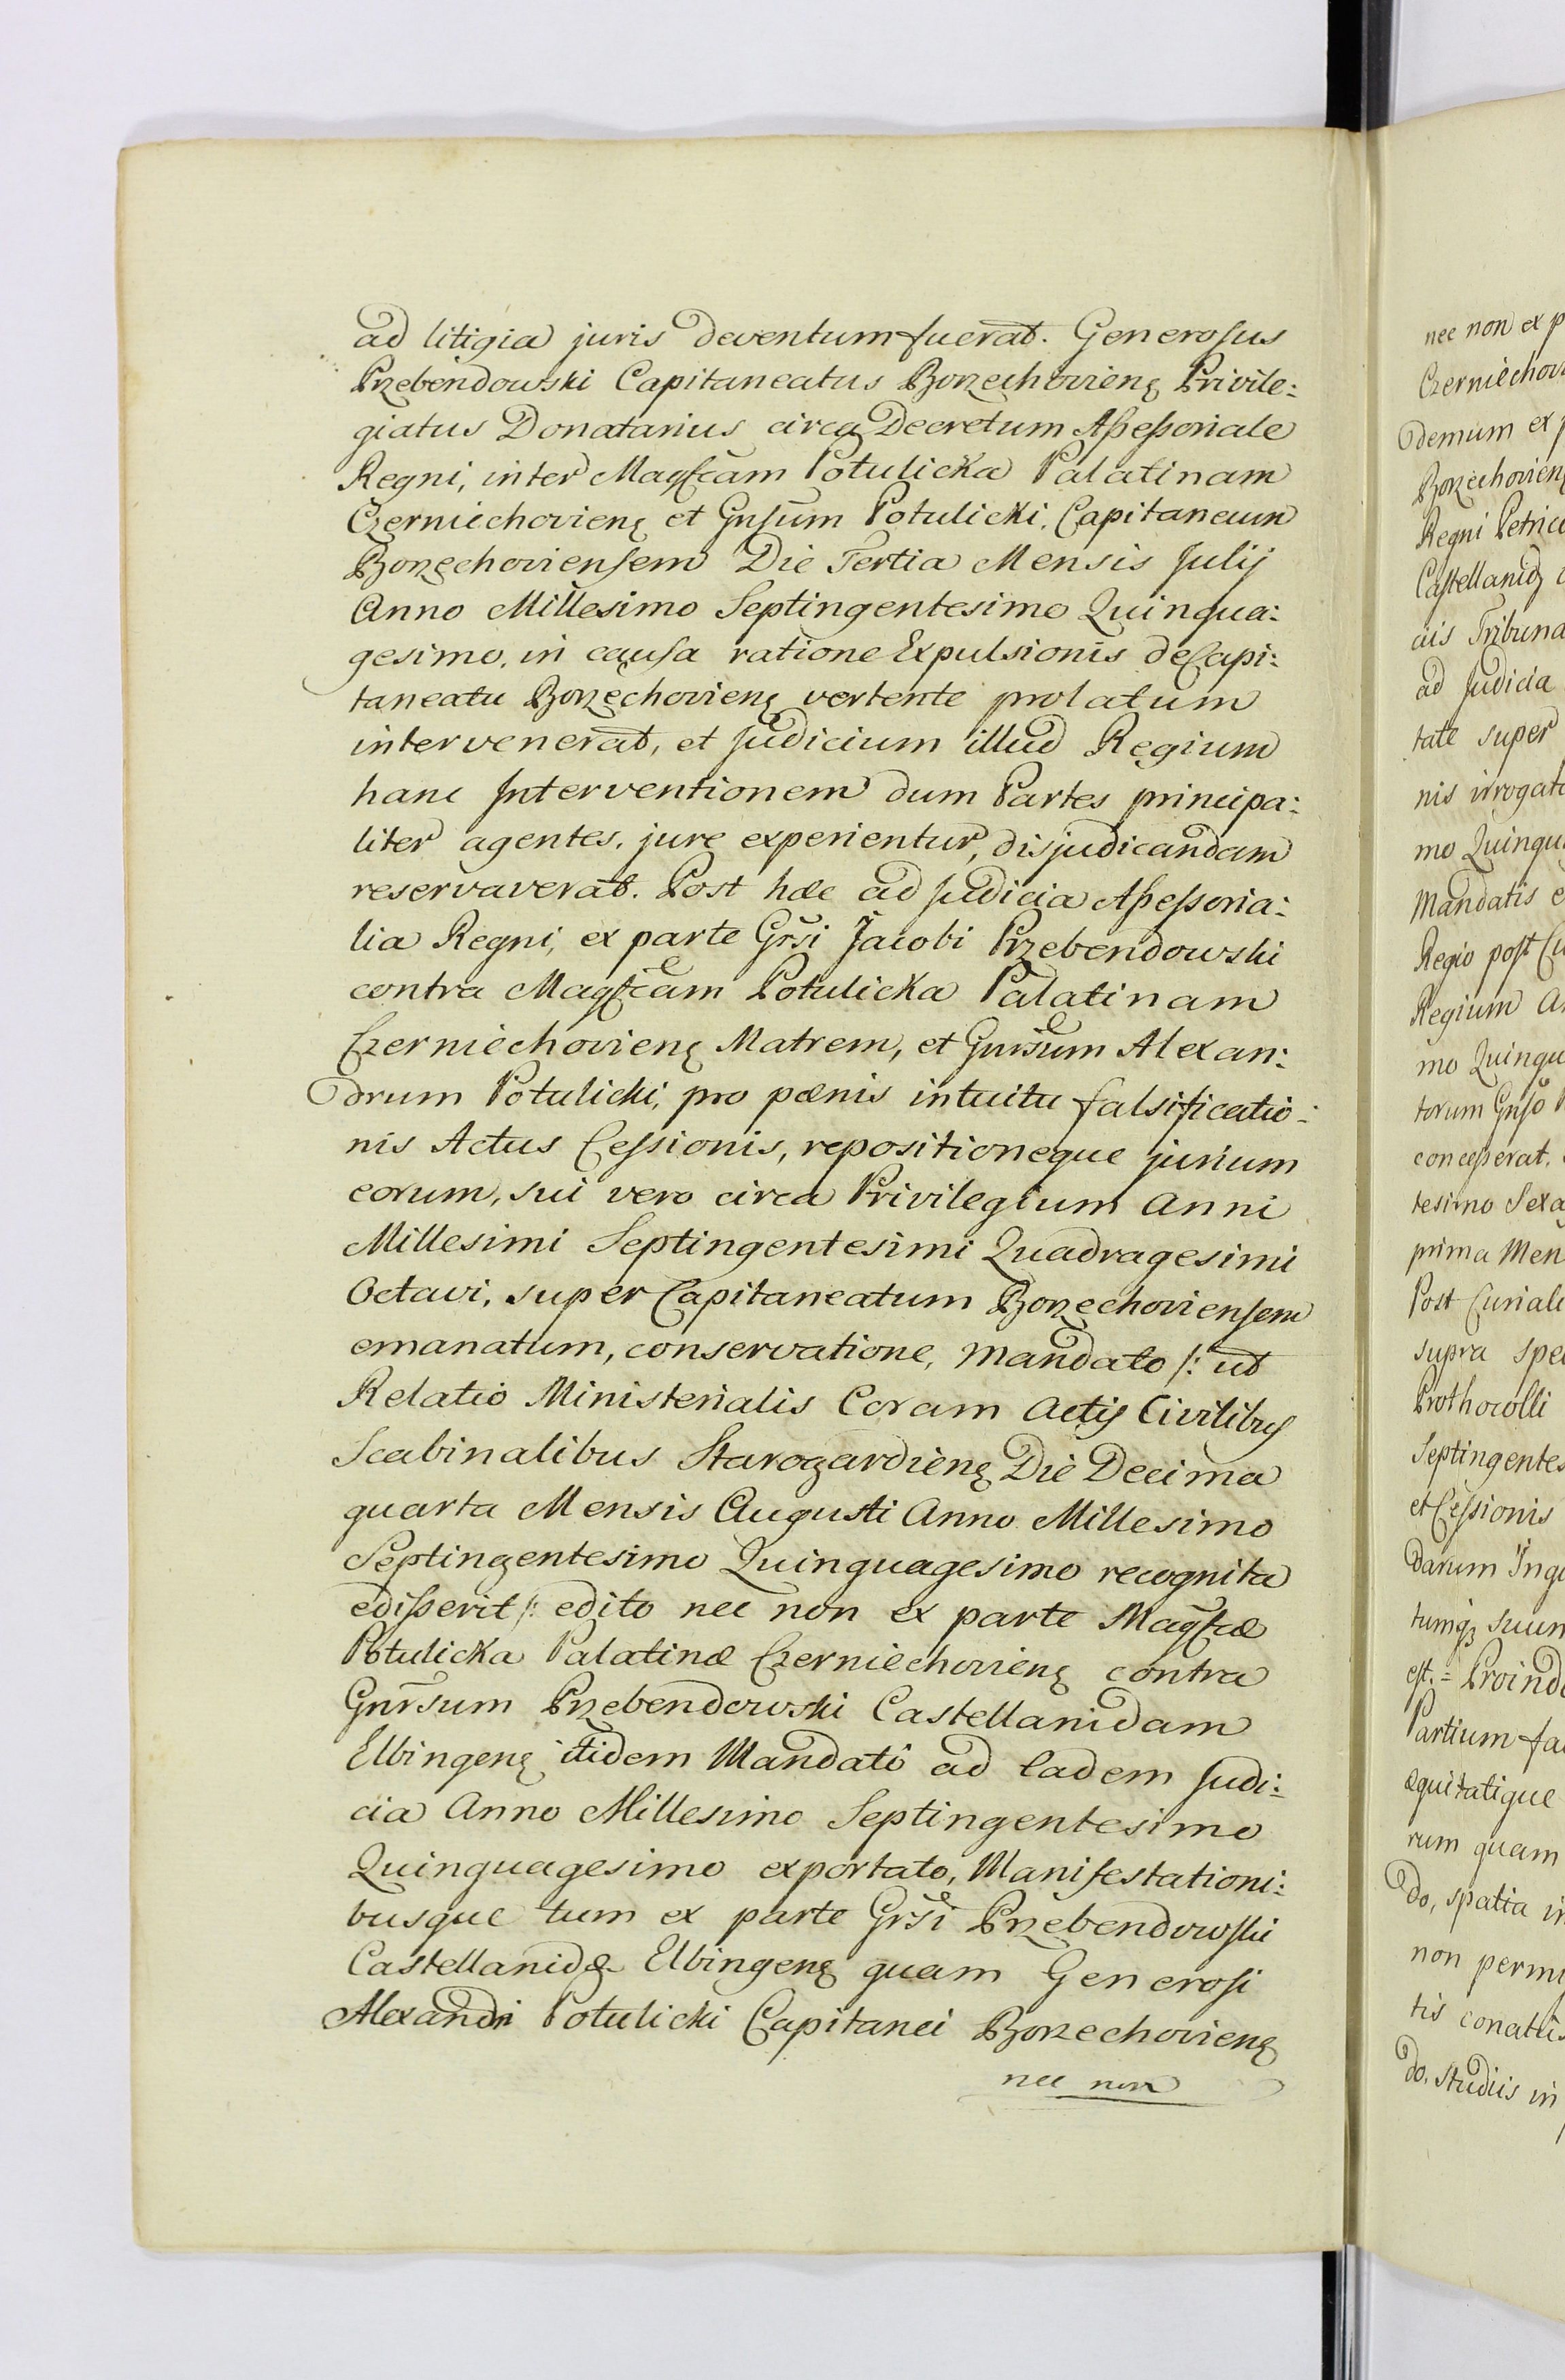 ad litigia juris deventum fuerat. Generosus
Przebendowski Capitaneatus Borzechovieñ Privile:
giatus Donatarius circa Decretum Assessoriale
Regni, inter Magficam Potulicka Palatinam
Czerniechovieñ et Gnsum Potulicki, Capitaneum
Borzechoviensem Die Tertia Mensis Julij
Anno Millesimo Septingentesimo Quinqua:
gesimo, in causa ratione Expulsionis de Capi:
taneatu Borzechovieñ vertente prolatum
intervenerat, et Judicium illud Regium
hanc Interventionem dum Partes principa:
liter agentes, jure experientur, disjudicandam
reservaverat. Post hæc ad Judicia Assessoria:
lia Regni, ex parte Grsi Jacobi Przebendowski
contra Magficam Potulicka Palatinam
Czerniechovieñ Matrem, et Gnrsum Alexan:
drum Potulicki, pro pœnis intuitu falsificatio:
nis Actus Cessionis, repositioneque jurium
eorum, sui vero circa Privilegium Anni
Millesimi Septingentesimi Quadragesimi
Octavi, super Capitaneatum Borzechoviensem
emanatum, conservatione, Mandato /: ut
Relatio Ministerialis Coram Actis Civilibus
Scabinalibus Starogardieñ Die Decima
quarta Mensis Augusti Anno Millesimo
Septingentesimo Quinquagesimo recognita
edisserit :/ edito nec non ex parte Magfcæ
Potulicka Palatinæ Czerniechovieñ contra
Gnrsum Przebendowski Castellanidam
Elbingeñ itidem Mandato ad Eadem Judi:
cia Anno Millesimo Septingentesimo
Quinquagesimo exportato, Manifestationi:
busque tum ex parte Grsi Przebendowski
Castellanidæ Elbingeñ quam Generosi
Alexandri Potulicki Capitanei Borzechovieñ
nec non
nec non ex p
Czerniechov
demum ex p
Borzechovieñ
Regni Petric
Castellanidæ
ciis Tribuna
ad Judicia
tate super
nis irrogat
mo Quinqu
Mandatis e
Regio post Cu
Regium A
mo Quinqu
torum Gnso P
concesserat.
tesimo Sexa
prima Men
Post Curiale
supra spe
Prothocolli
Septingentes
et Cessionis
darum Ing
tumq3 suum
est. = Proinde
Partium fa
æquitatique
rum quam
do, spatia in
non permi
tis conatus
do, studiis in